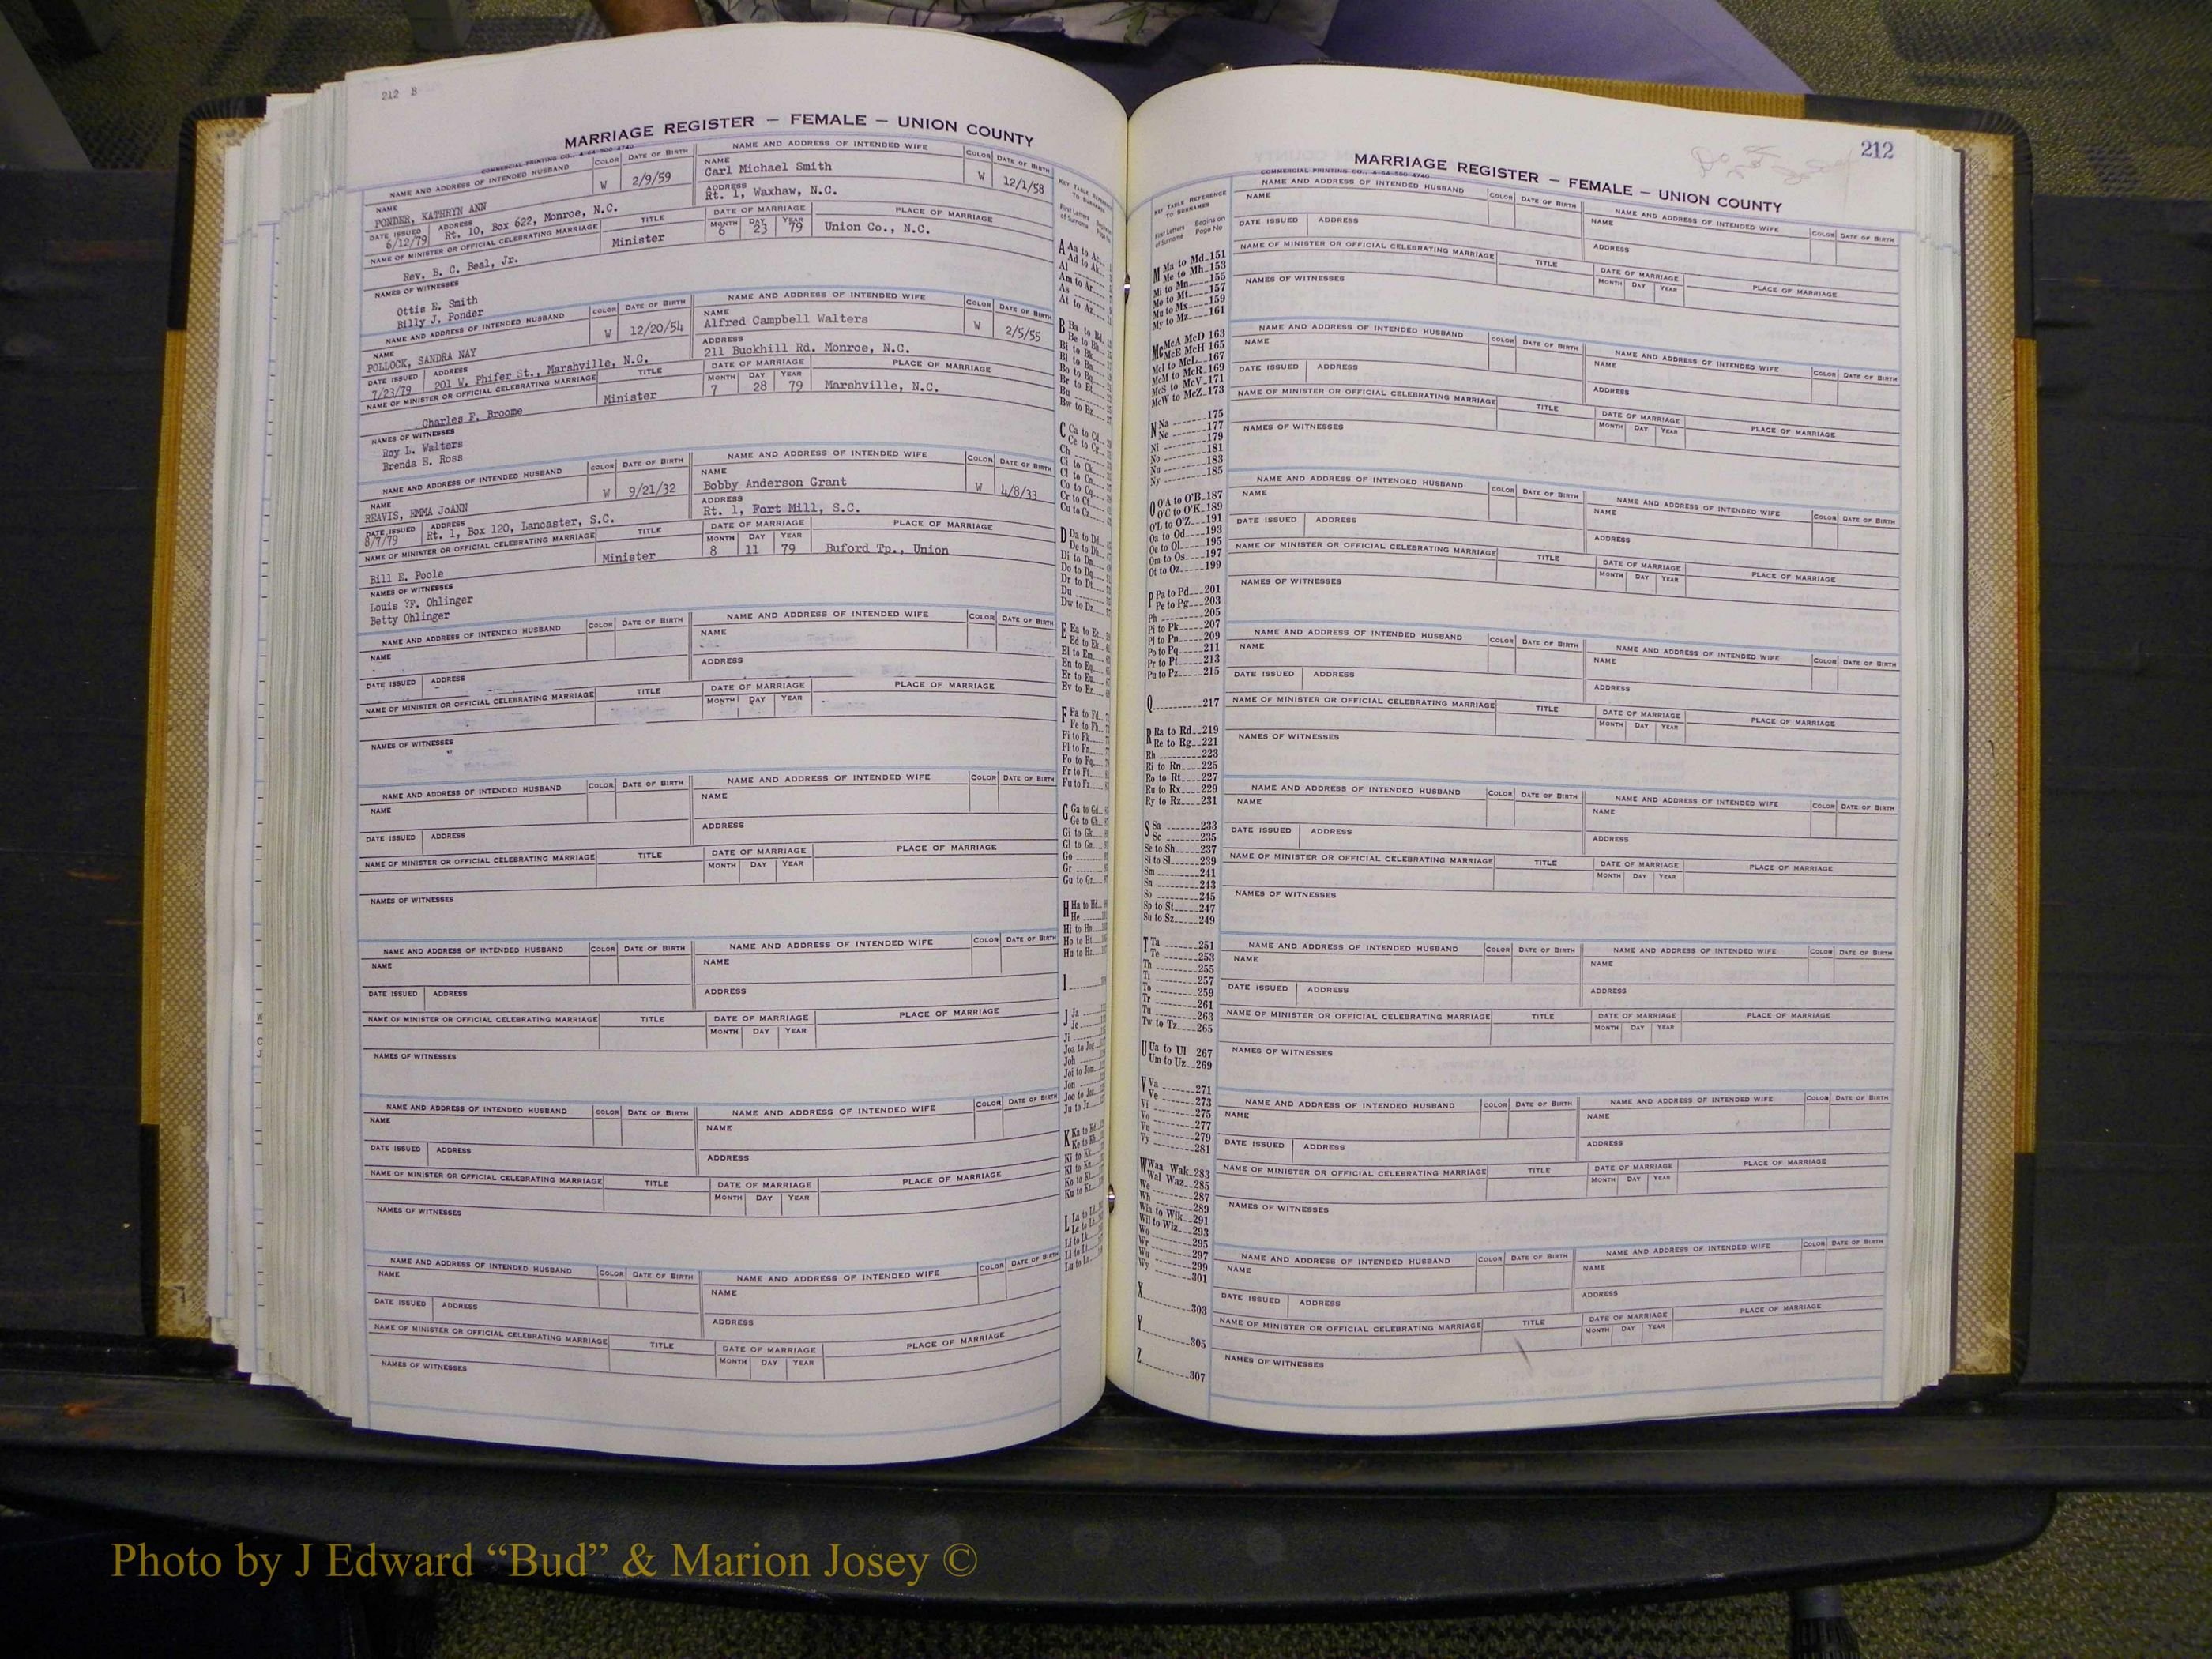 212 B
MARRIAGE REGISTER — FEMALE — UNION COUNTY
COMMERCIAL PRINTING CO., 4-64-500-4740
NAME AND ADDRESS OF INTENDED HUSBAND COLOR DATE OF BIRTH NAME AND ADDRESS OF INTENDED WIFE COLOR DATE OF BIRTH
NAME PONDER, KATHRYN ANN W 2/9/59 NAME Carl Michael Smith W 12/1/58
DATE ISSUED 6/12/79 ADDRESS Rt. 10, Box 622, Monroe, N.C. ADDRESS Rt. 1, Waxhaw, N.C.
NAME OF MINISTER OR OFFICIAL CELEBRATING MARRIAGE TITLE DATE OF MARRIAGE PLACE OF MARRIAGE
Rev. B. C. Beal, Jr. Minister MONTH 6 DAY 23 YEAR 79 Union Co., N.C.
NAMES OF WITNESSES
Ottis E. Smith
Billy J. Ponder
NAME AND ADDRESS OF INTENDED HUSBAND COLOR DATE OF BIRTH NAME AND ADDRESS OF INTENDED WIFE COLOR DATE OF BIRTH
NAME POLLOCK, SANDRA NAY W 12/20/54 NAME Alfred Campbell Walters W 2/5/55
DATE ISSUED 7/23/79 ADDRESS 201 W. Phifer St., Marshville, N.C. ADDRESS 211 Buckhill Rd. Monroe, N.C.
NAME OF MINISTER OR OFFICIAL CELEBRATING MARRIAGE TITLE DATE OF MARRIAGE PLACE OF MARRIAGE
Charles F. Broome Minister MONTH 7 DAY 28 YEAR 79 Marshville, N.C.
NAMES OF WITNESSES
Roy L. Walters
Brenda E. Ross
NAME AND ADDRESS OF INTENDED HUSBAND COLOR DATE OF BIRTH NAME AND ADDRESS OF INTENDED WIFE COLOR DATE OF BIRTH
NAME REAVIS, EMMA JoANN W 9/21/32 NAME Bobby Anderson Grant W 4/8/33
DATE ISSUED 8/7/79 ADDRESS Rt. 1, Box 120, Lancaster, S.C. ADDRESS Rt. 1, Fort Mill, S.C.
NAME OF MINISTER OR OFFICIAL CELEBRATING MARRIAGE TITLE DATE OF MARRIAGE PLACE OF MARRIAGE
Bill E. Poole Minister MONTH 8 DAY 11 YEAR 79 Buford Tp., Union
NAMES OF WITNESSES
Louis ?F. Ohlinger
Betty Ohlinger
NAME AND ADDRESS OF INTENDED HUSBAND COLOR DATE OF BIRTH NAME AND ADDRESS OF INTENDED WIFE COLOR DATE OF BIRTH
NAME NAME
DATE ISSUED ADDRESS ADDRESS
NAME OF MINISTER OR OFFICIAL CELEBRATING MARRIAGE TITLE DATE OF MARRIAGE PLACE OF MARRIAGE
MONTH DAY YEAR
NAMES OF WITNESSES
NAME AND ADDRESS OF INTENDED HUSBAND COLOR DATE OF BIRTH NAME AND ADDRESS OF INTENDED WIFE COLOR DATE OF BIRTH
NAME NAME
DATE ISSUED ADDRESS ADDRESS
NAME OF MINISTER OR OFFICIAL CELEBRATING MARRIAGE TITLE DATE OF MARRIAGE PLACE OF MARRIAGE
MONTH DAY YEAR
NAMES OF WITNESSES
NAME AND ADDRESS OF INTENDED HUSBAND COLOR DATE OF BIRTH NAME AND ADDRESS OF INTENDED WIFE COLOR DATE OF BIRTH
NAME NAME
DATE ISSUED ADDRESS ADDRESS
NAME OF MINISTER OR OFFICIAL CELEBRATING MARRIAGE TITLE DATE OF MARRIAGE PLACE OF MARRIAGE
MONTH DAY YEAR
NAMES OF WITNESSES
NAME AND ADDRESS OF INTENDED HUSBAND COLOR DATE OF BIRTH NAME AND ADDRESS OF INTENDED WIFE COLOR DATE OF BIRTH
NAME NAME
DATE ISSUED ADDRESS ADDRESS
NAME OF MINISTER OR OFFICIAL CELEBRATING MARRIAGE TITLE DATE OF MARRIAGE PLACE OF MARRIAGE
MONTH DAY YEAR
NAMES OF WITNESSES
NAME AND ADDRESS OF INTENDED HUSBAND COLOR DATE OF BIRTH NAME AND ADDRESS OF INTENDED WIFE COLOR DATE OF BIRTH
NAME NAME
DATE ISSUED ADDRESS ADDRESS
NAME OF MINISTER OR OFFICIAL CELEBRATING MARRIAGE TITLE DATE OF MARRIAGE PLACE OF MARRIAGE
MONTH DAY YEAR
NAMES OF WITNESSES
212
MARRIAGE REGISTER — FEMALE — UNION COUNTY
COMMERCIAL PRINTING CO., 4-64-500-4740
KEY TABLE REFERENCE
TO SURNAMES
First Letters of Surname Begins on Page No
M Ma to Md 151
Me to Mh 153
Mi to Mn 155
Mo to Mt 157
Mu to Mx 159
My to Mz 161
Mc McA McD 163
McE McH 165
McI to McL 167
McM to McR 169
McS to McV 171
McW to McZ 173
N Na 175
Ne 177
Ni 179
No 181
Nu 183
Ny 185
O O'A to O'B 187
O'C to O'K 189
O'L to O'Z 191
Oa to Od 193
Oe to Ol 195
Om to Os 197
Ot to Oz 199
P Pa to Pd 201
Pe to Pg 203
Ph 205
Pi to Pk 207
Pl to Pn 209
Po to Pq 211
Pr to Pt 213
Pu to Pz 215
Q 217
R Ra to Rd 219
Re to Rg 221
Rh 223
Ri to Rn 225
Ro to Rt 227
Ru to Rx 229
Ry to Rz 231
S Sa 233
Sc 235
Se to Sh 237
Si to Sl 239
Sm 241
Sn 243
So 245
Sp to St 247
Su to Sz 249
T Ta 251
Te 253
Th 255
Ti 257
To 259
Tr 261
Tu 263
Tw to Tz 265
U Ua to Ul 267
Um to Uz 269
V Va 271
Ve 273
Vi 275
Vo 277
Vu 279
Vy 281
W Waa Wak 283
Wal Waz 285
We 287
Wh 289
Wia to Wik 291
Wil to Wiz 293
Wo 295
Wr 297
Wu 299
Wy 301
X 303
Y 305
Z 307
NAME AND ADDRESS OF INTENDED HUSBAND COLOR DATE OF BIRTH NAME AND ADDRESS OF INTENDED WIFE COLOR DATE OF BIRTH
NAME NAME
DATE ISSUED ADDRESS ADDRESS
NAME OF MINISTER OR OFFICIAL CELEBRATING MARRIAGE TITLE DATE OF MARRIAGE PLACE OF MARRIAGE
MONTH DAY YEAR
NAMES OF WITNESSES
NAME AND ADDRESS OF INTENDED HUSBAND COLOR DATE OF BIRTH NAME AND ADDRESS OF INTENDED WIFE COLOR DATE OF BIRTH
NAME NAME
DATE ISSUED ADDRESS ADDRESS
NAME OF MINISTER OR OFFICIAL CELEBRATING MARRIAGE TITLE DATE OF MARRIAGE PLACE OF MARRIAGE
MONTH DAY YEAR
NAMES OF WITNESSES
NAME AND ADDRESS OF INTENDED HUSBAND COLOR DATE OF BIRTH NAME AND ADDRESS OF INTENDED WIFE COLOR DATE OF BIRTH
NAME NAME
DATE ISSUED ADDRESS ADDRESS
NAME OF MINISTER OR OFFICIAL CELEBRATING MARRIAGE TITLE DATE OF MARRIAGE PLACE OF MARRIAGE
MONTH DAY YEAR
NAMES OF WITNESSES
NAME AND ADDRESS OF INTENDED HUSBAND COLOR DATE OF BIRTH NAME AND ADDRESS OF INTENDED WIFE COLOR DATE OF BIRTH
NAME NAME
DATE ISSUED ADDRESS ADDRESS
NAME OF MINISTER OR OFFICIAL CELEBRATING MARRIAGE TITLE DATE OF MARRIAGE PLACE OF MARRIAGE
MONTH DAY YEAR
NAMES OF WITNESSES
NAME AND ADDRESS OF INTENDED HUSBAND COLOR DATE OF BIRTH NAME AND ADDRESS OF INTENDED WIFE COLOR DATE OF BIRTH
NAME NAME
DATE ISSUED ADDRESS ADDRESS
NAME OF MINISTER OR OFFICIAL CELEBRATING MARRIAGE TITLE DATE OF MARRIAGE PLACE OF MARRIAGE
MONTH DAY YEAR
NAMES OF WITNESSES
NAME AND ADDRESS OF INTENDED HUSBAND COLOR DATE OF BIRTH NAME AND ADDRESS OF INTENDED WIFE COLOR DATE OF BIRTH
NAME NAME
DATE ISSUED ADDRESS ADDRESS
NAME OF MINISTER OR OFFICIAL CELEBRATING MARRIAGE TITLE DATE OF MARRIAGE PLACE OF MARRIAGE
MONTH DAY YEAR
NAMES OF WITNESSES
NAME AND ADDRESS OF INTENDED HUSBAND COLOR DATE OF BIRTH NAME AND ADDRESS OF INTENDED WIFE COLOR DATE OF BIRTH
NAME NAME
DATE ISSUED ADDRESS ADDRESS
NAME OF MINISTER OR OFFICIAL CELEBRATING MARRIAGE TITLE DATE OF MARRIAGE PLACE OF MARRIAGE
MONTH DAY YEAR
NAMES OF WITNESSES
NAME AND ADDRESS OF INTENDED HUSBAND COLOR DATE OF BIRTH NAME AND ADDRESS OF INTENDED WIFE COLOR DATE OF BIRTH
NAME NAME
DATE ISSUED ADDRESS ADDRESS
NAME OF MINISTER OR OFFICIAL CELEBRATING MARRIAGE TITLE DATE OF MARRIAGE PLACE OF MARRIAGE
MONTH DAY YEAR
NAMES OF WITNESSES
Photo by J Edward “Bud” & Marion Josey ©